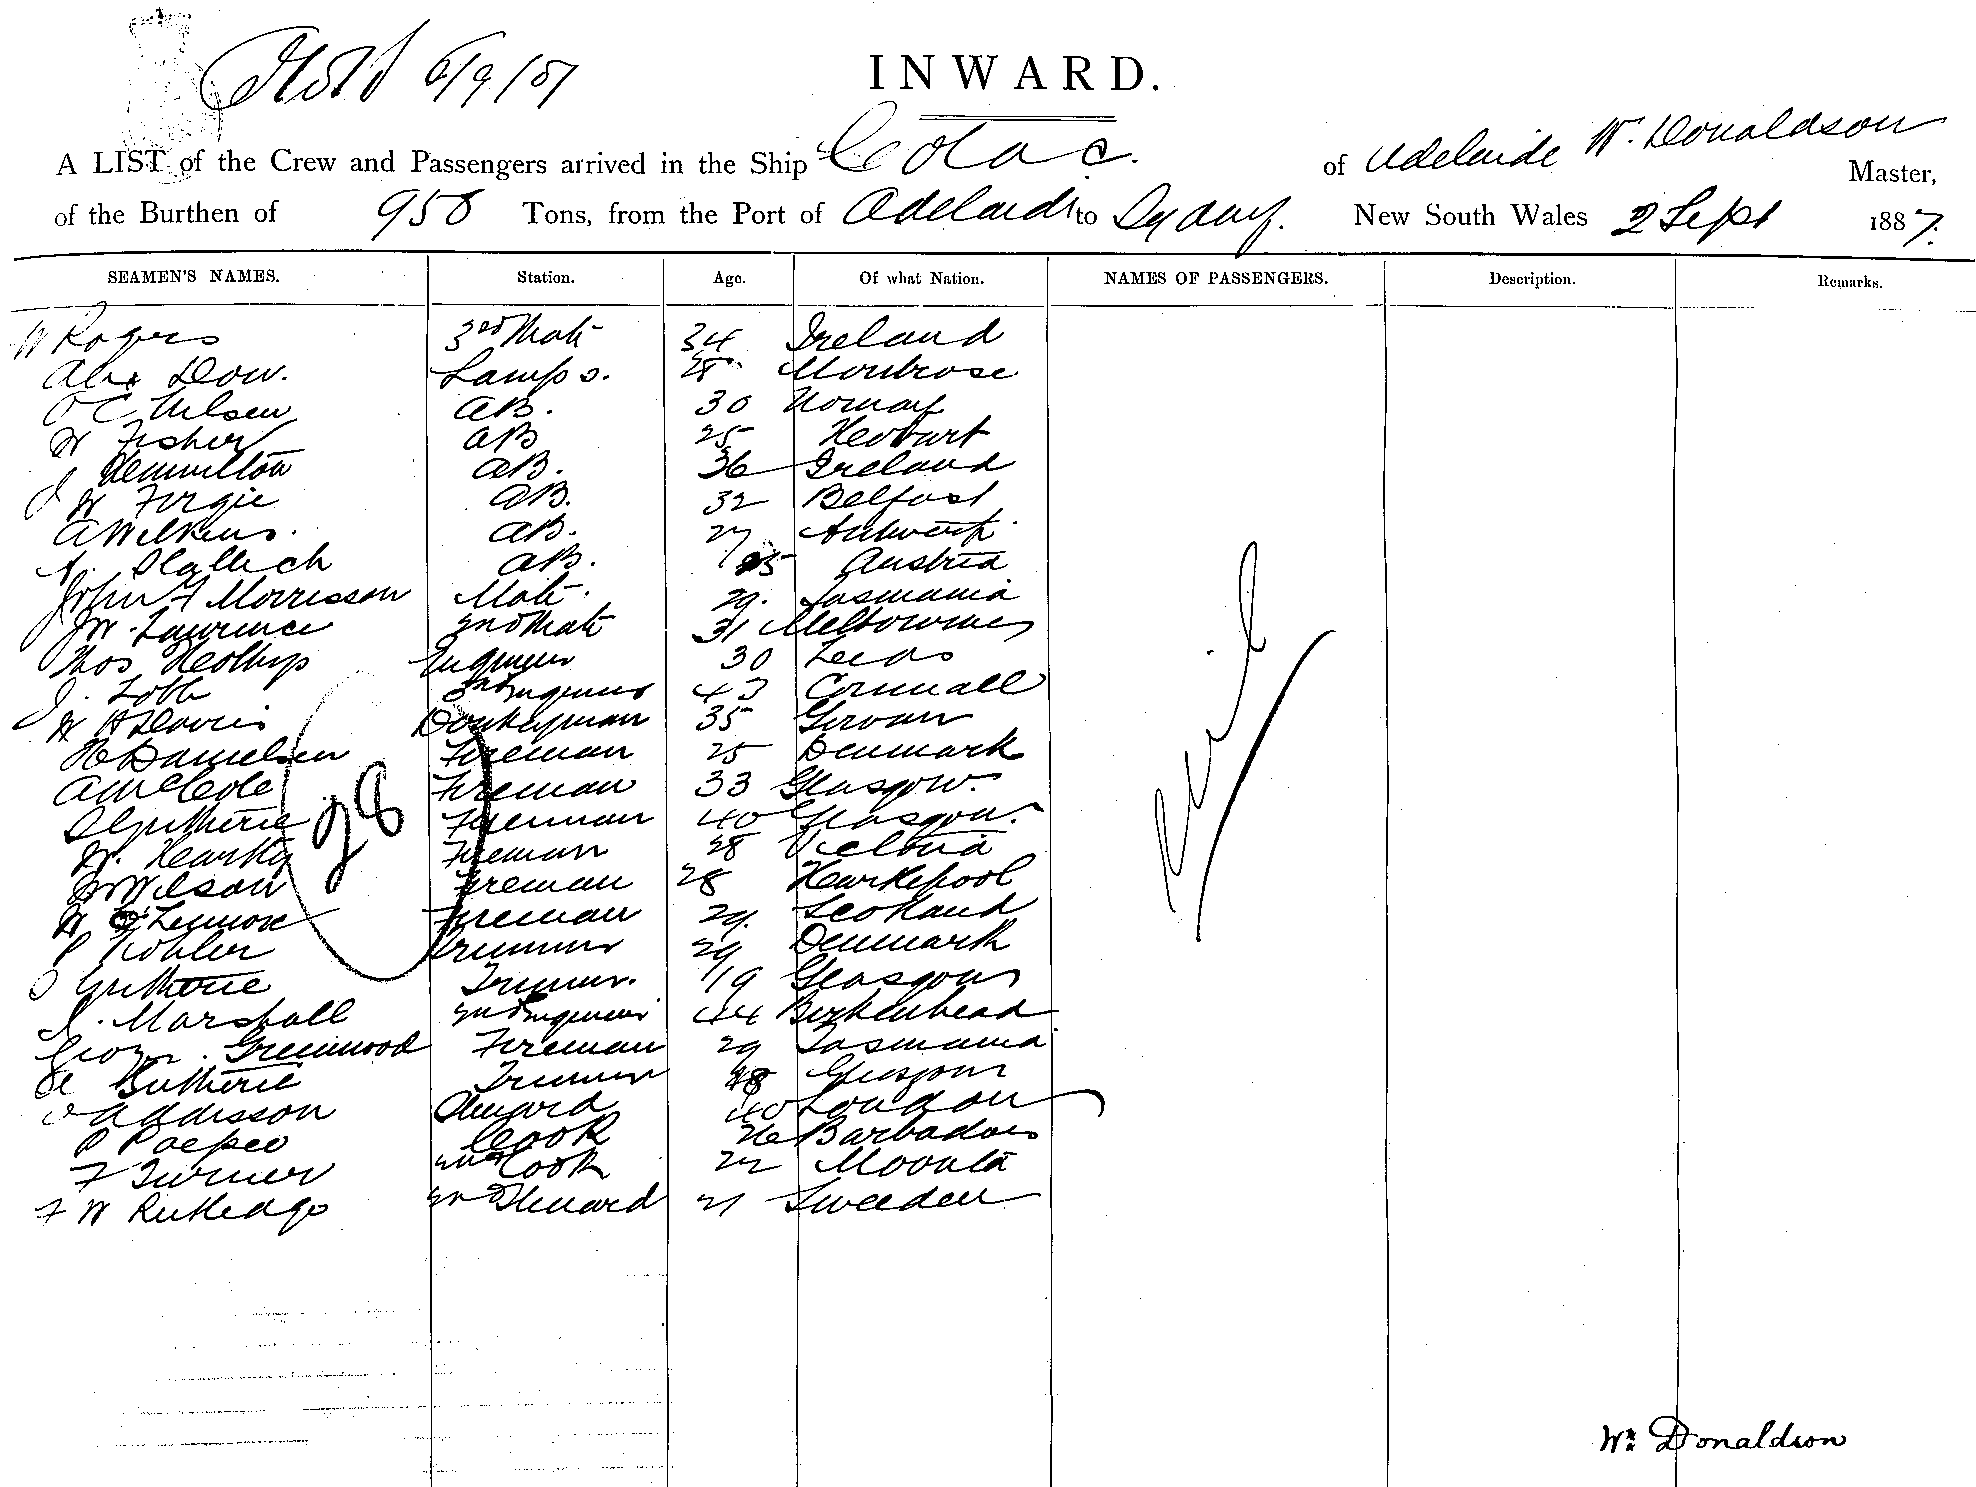 6/9/87
INWARD.
A LIST of the Crew and Passengers arrived in the Ship Colac. of Adelaide W. Donaldson Master,
of the Burthen of 958 Tons, from the Port of Adelaide to Sydney. New South Wales 2 Sept 1887.
SEAMEN'S NAMES. Station. Age. Of what Nation. NAMES OF PASSENGERS. Description. Remarks.
W Rogers 3rd Mate 34 Ireland
Alex Dow. Lamps. 28 Montrose
O C Nilsen AB. 30 Norway
W Fisher AB 25 Hobart
J Hamilton AB. 36 Ireland
W Fergie AB. 32 Belfast
A Wilkins. AB. 27 Antwerp
AB. 25 Austria
John F Morrisson Mate. 29. Tasmania
W. Lawrence 2nd Mate 31 Melbourne
Thos Heslhip Engineer 30 Leeds
J. Lobb 3rd Engineer 43 Cornwall
W H Davis Donkeyman 35 Girvan
H Danielsen Fireman 25 Denmark
A McCole Fireman 33 Glasgow.
D Guthrie Fireman 40 Glasgow.
W. Fireman 28 Victoria
W Wilson Fireman 28 Hartlepool
W Lennox Fireman 29. Scotland
P Kohler Trimmer 29 Denmark
Guthrie Trimmer. 19 Glasgow
J. Marshall 2nd Engineer 44 Birkenhead
George Greenwood Fireman 29 Tasmania
Guthrie Trimmer 18 Glasgow
Addisson Steward 40 London
P Cook 26 Barbadoes
F Turner 2nd Cook 22 Moonta
F W Rutledge 2nd Steward 21 Sweeden
28
Nil
Wm Donaldson